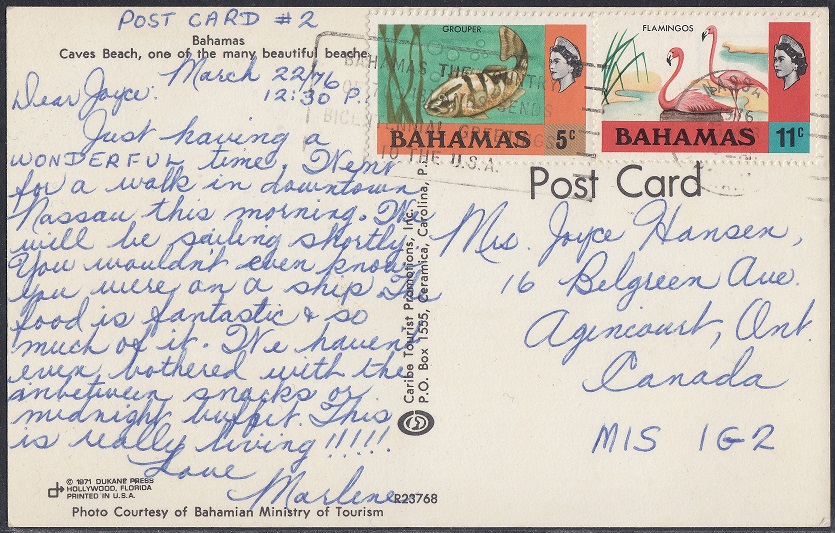 POST CARD #2
Bahamas
Caves Beach, one of the many beautiful beache
March 22/76
12:30 P.
Dear Joyce:
Just having a
WONDERFUL time. Went
for a walk in downtown
Nassau this morning. We
will be sailing shortly.
You wouldn't even know
you were on a ship. The
food is fantastic & so
much of it. We haven't
even bothered with the
inbetween snacks or
midnight buffit. This
is really living !!!!!
Love
Marlene
© 1971 DUKANE PRESS
HOLLYWOOD, FLORIDA
PRINTED IN U.S.A.
R23768
Photo Courtesy of Bahamian Ministry of Tourism
Caribe Tourist Promotions, Inc.
P.O. Box 1555, Ceramica, Carolina, P.
GROUPER
BAHAMAS 5c
FLAMINGOS
BAHAMAS 11c
BAHAMAS THE COUNTRY
SENDS
BICENTENNIAL GREETINGS
TO THE U.S.A.
NASSAU
1976
Post Card
Mrs. Joyce Hansen,
16 Belgreen Ave.
Agincourt, Ont.
Canada
M1S 1G2